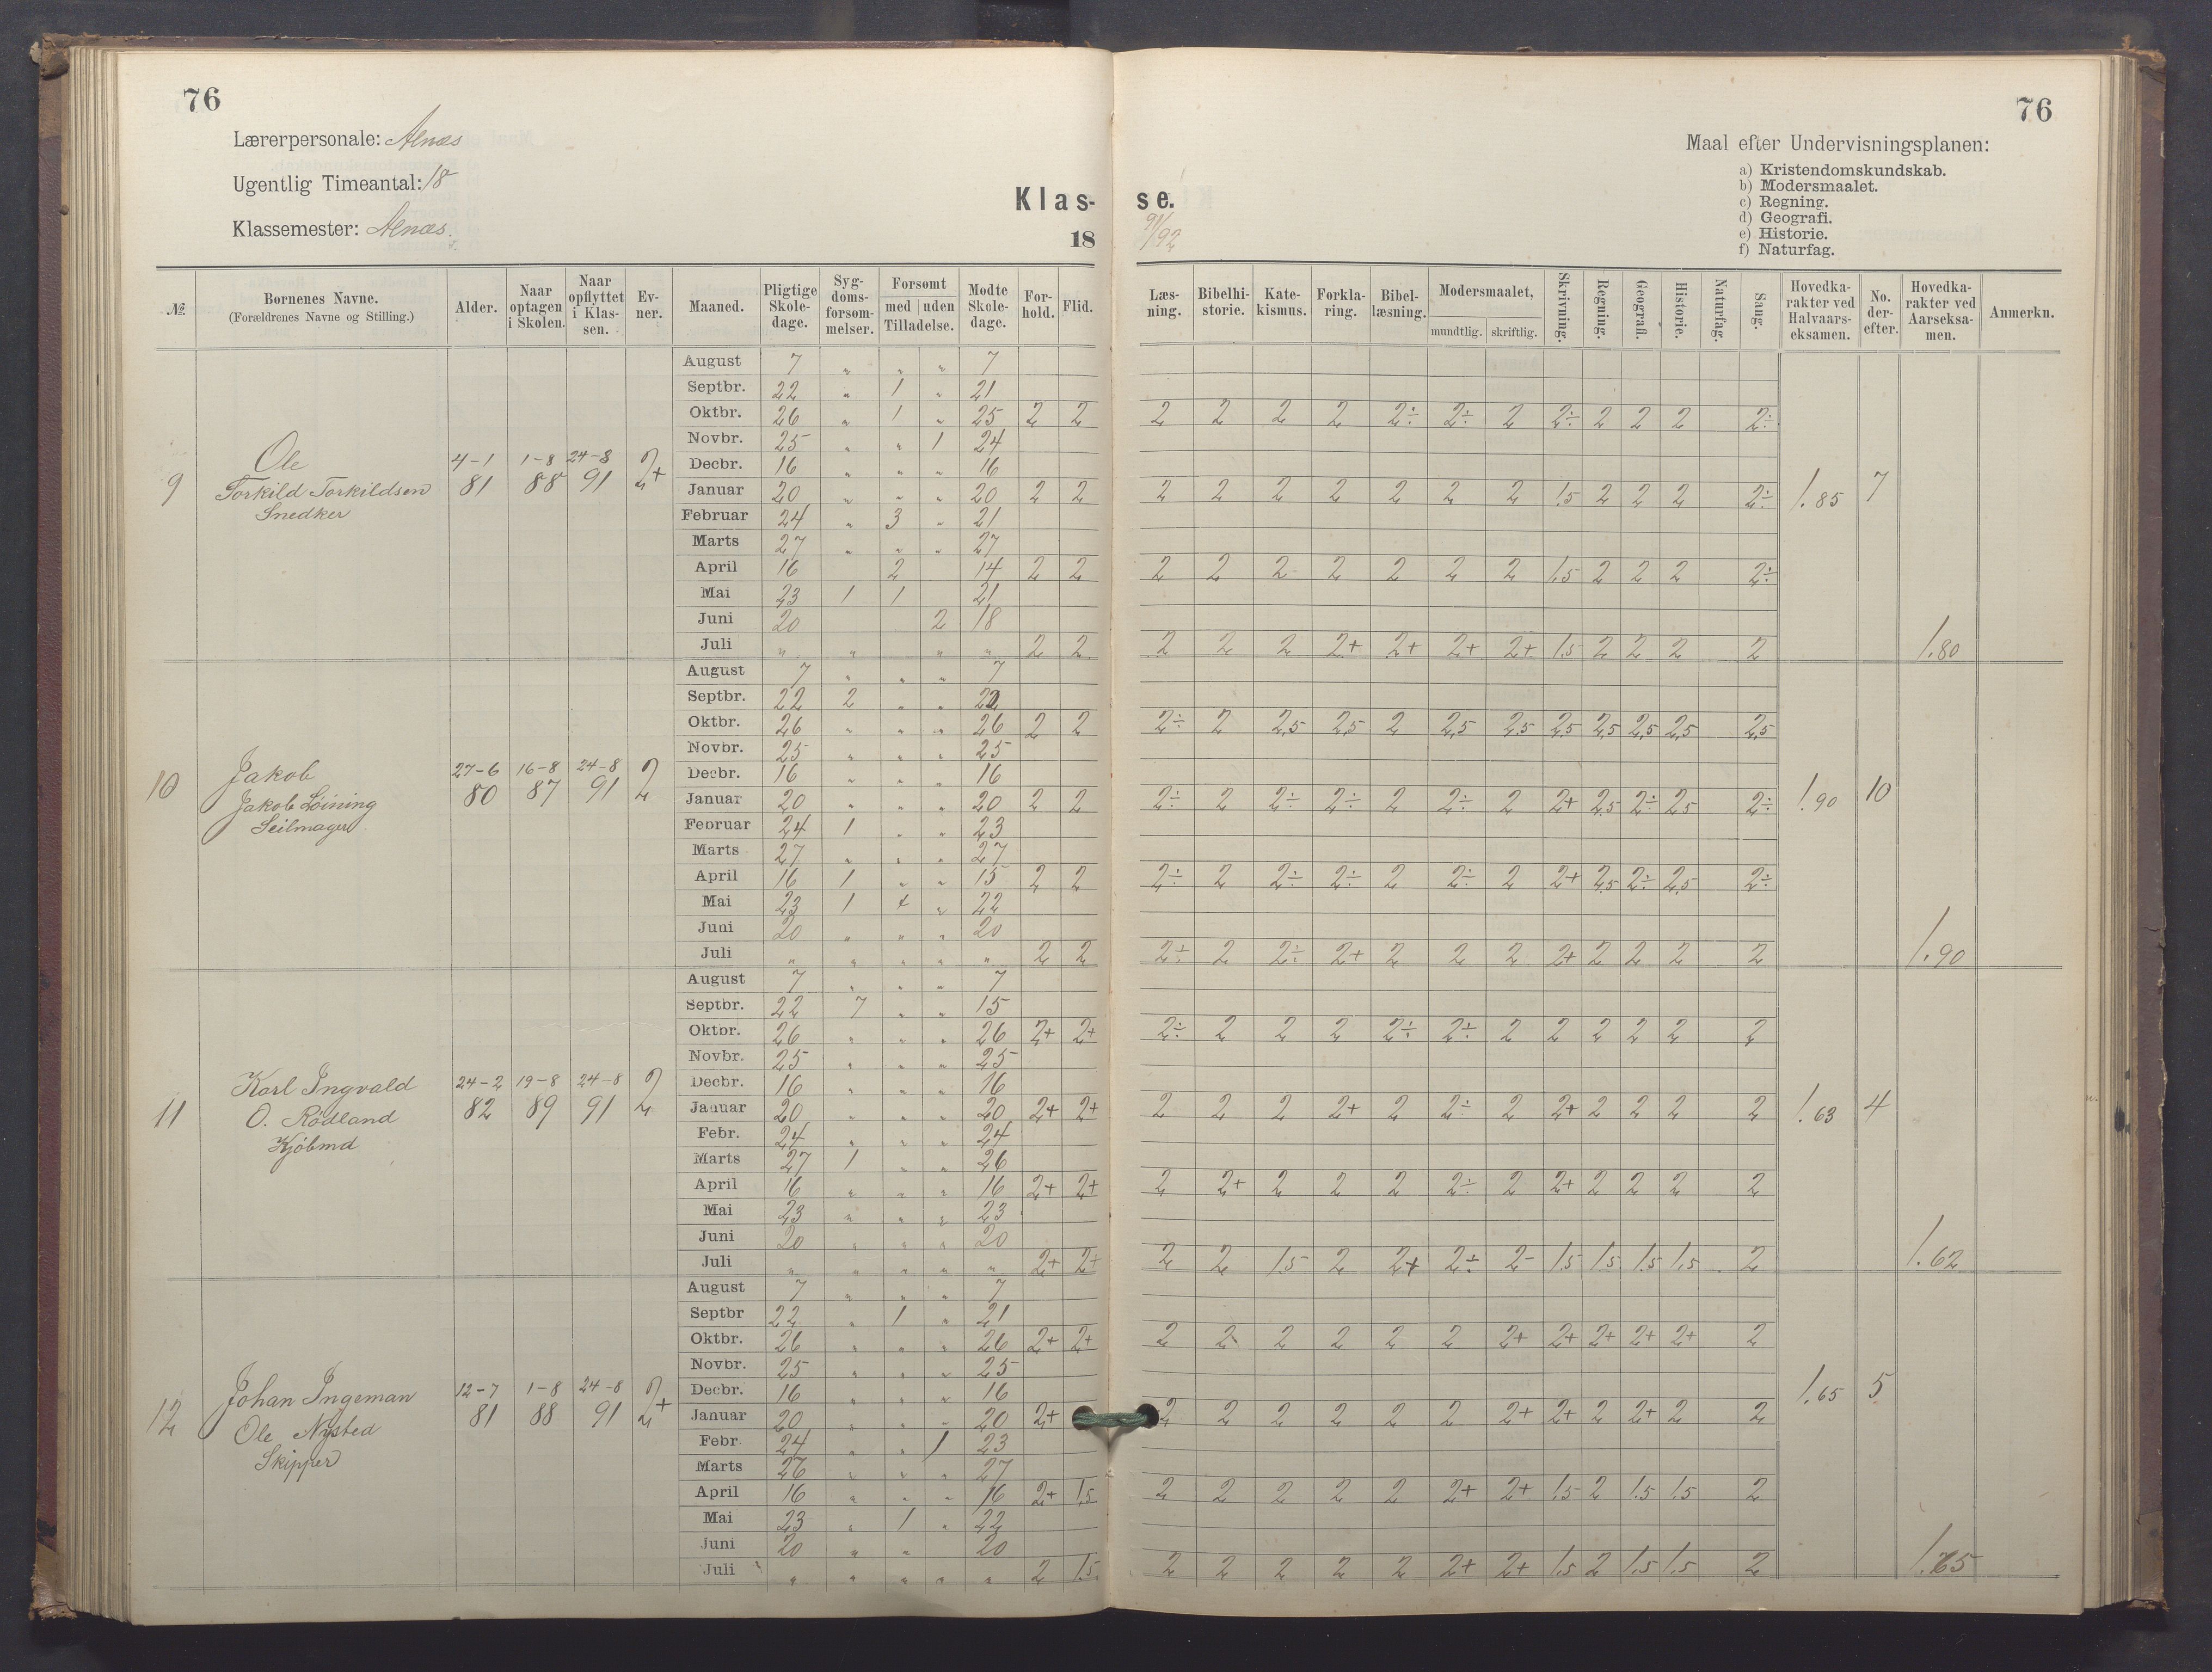 76
76
Lærerpersonale: Aenæs
Ugentlig Timeantal: 18
Klassemester: Aenæs.
Klas-
se.
18
91/92
Maal efter Undervisningsplanen:
a) Kristendomskundskab.
b) Modersmaalet.
c) Regning.
d) Geografi.
e) Historie.
f) Naturfag.
№ Børnenes Navne. (Forældrenes Navne og Stilling.) Alder. Naar optagen i Skolen. Naar opflyttet i Klas-sen. Ev-ner. Maaned. Pligtige Skole-dage. Syg-doms-forsøm-melser. Forsømt med uden Tilladelse. Mødte Skole-dage. For-hold. Flid. Læs-ning. Bibelhi-storie. Kate-kismus. Forkla-ring. Bibel-læsning. Modersmaalet, mundtlig. skriftlig. Skrivning. Regning. Geografi. Historie. Naturfag. Sang. Hovedka-rakter ved Halvaars-eksamen. No. der-efter. Hovedka-rakter ved Aarseksa-men. Anmerkn.
9 Ole
Torkild Torkildsen
Snedker
4-1 81 1-8 88 24-8 91 2+
August 7 „ „ „ 7
Septbr. 22 „ 1 „ 21
Oktbr. 26 „ 1 „ 25 2 2 2 2 2 2 2÷ 2÷ 2 2÷ 2 2 2 2÷
Novbr. 25 „ „ 1 24
Decbr. 16 „ „ „ 16
Januar 20 „ „ „ 20 2 2 2 2 2 2 2 2 2 1.5 2 2 2 2÷ 1.85 7
Februar 24 „ 3 „ 21
Marts 27 „ „ „ 27
April 16 2 14 2 2 2 2 2 2 2 2 2 1.5 2 2 2 2÷
Mai 23 1 1 21
Juni 20 2 18
Juli „ „ „ „ 2 2 2 2 2 2+ 2+ 2+ 2+ 1.5 2 2 2 2 1.80
10 Jakob
Jakob Löining
Seilmager
27-6 80 16-8 87 24-8 91 2
August 7 „ „ „ 7
Septbr. 22 2 „ „ 22
Oktbr. 26 „ „ „ 26 2 2 2÷ 2 2,5 2,5 2 2,5 2,5 2,5 2,5 2,5 2,5 2,5
Novbr. 25 „ „ „ 25
Decbr. 16 „ „ „ 16
Januar 20 „ „ „ 20 2 2 2÷ 2 2÷ 2÷ 2 2÷ 2 2+ 2.5 2÷ 2.5 2÷ 1.90 10
Februar 24 1 „ „ 23
Marts 27 „ „ „ 27
April 16 1 „ „ 15 2 2 2÷ 2 2÷ 2÷ 2 2÷ 2 2+ 2.5 2÷ 2,5 2÷
Mai 23 1 „ 22
Juni 20 „ „ „ 20
Juli „ „ „ „ „ 2 2 2÷ 2 2÷ 2+ 2 2 2 2+ 2 2 2 2 1.90
11 Karl Ingvald
O. Rödland
Kjöbmd
24-2 82 19-8 89 24-8 91 2
August 7 „ „ „ 7
Septbr. 22 7 „ „ 15
Oktbr. 26 „ „ „ 26 2+ 2+ 2÷ 2 2 2 2÷ 2÷ 2 2 2 2 2 2
Novbr. 25 „ „ „ 25
Decbr. 16 „ „ „ 16
Januar 20 „ „ „ 20 2+ 2+ 2 2 2 2+ 2 2÷ 2 2+ 2 2 2 2 1.63 4
Febr. 24 „ „ „ 24
Marts 27 1 „ „ 26
April 16 „ „ „ 16 2+ 2+ 2 2+ 2 2 2 2÷ 2 2+ 2 2 2 2
Mai 23 „ „ „ 23
Juni 20 „ „ „ 20
Juli „ „ „ „ „ 2+ 2+ 2 2 1.5 2 2+ 2÷ 2- 1.5 1.5 1.5 1.5 2 1.62
12 Johan Ingeman
Ole Nysted
Skipper
12-7 81 1-8 88 24-8 91 2+
August 7 „ „ „ 7
Septbr 22 „ 1 „ 21
Oktbr. 26 „ „ „ 26 2+ 2+ 2 2 2 2 2 2 2+ 2+ 2+ 2+ 2+ 2
Novbr. 25 „ „ „ 25
Decbr. 16 „ „ „ 16
Januar 20 „ „ „ 20 2+ 2 2 2 2 2 2 2+ 2+ 2 2+ 2 2 1.65 5
Febr 24 „ „ 1 23
Marts „ „ „ 27
April 16 „ „ „ 16 2+ 1.5 2 2 2 2 2 2+ 2+ 1.5 2 1.5 1.5 2
Mai 23 „ 1 „ 22
Juni 20 „ „ 20
Juli „ „ „ „ „ 2 1.5. 2 2 2 2 2 2+ 2+ 1.5 2 1.5 1.5 2 1.65